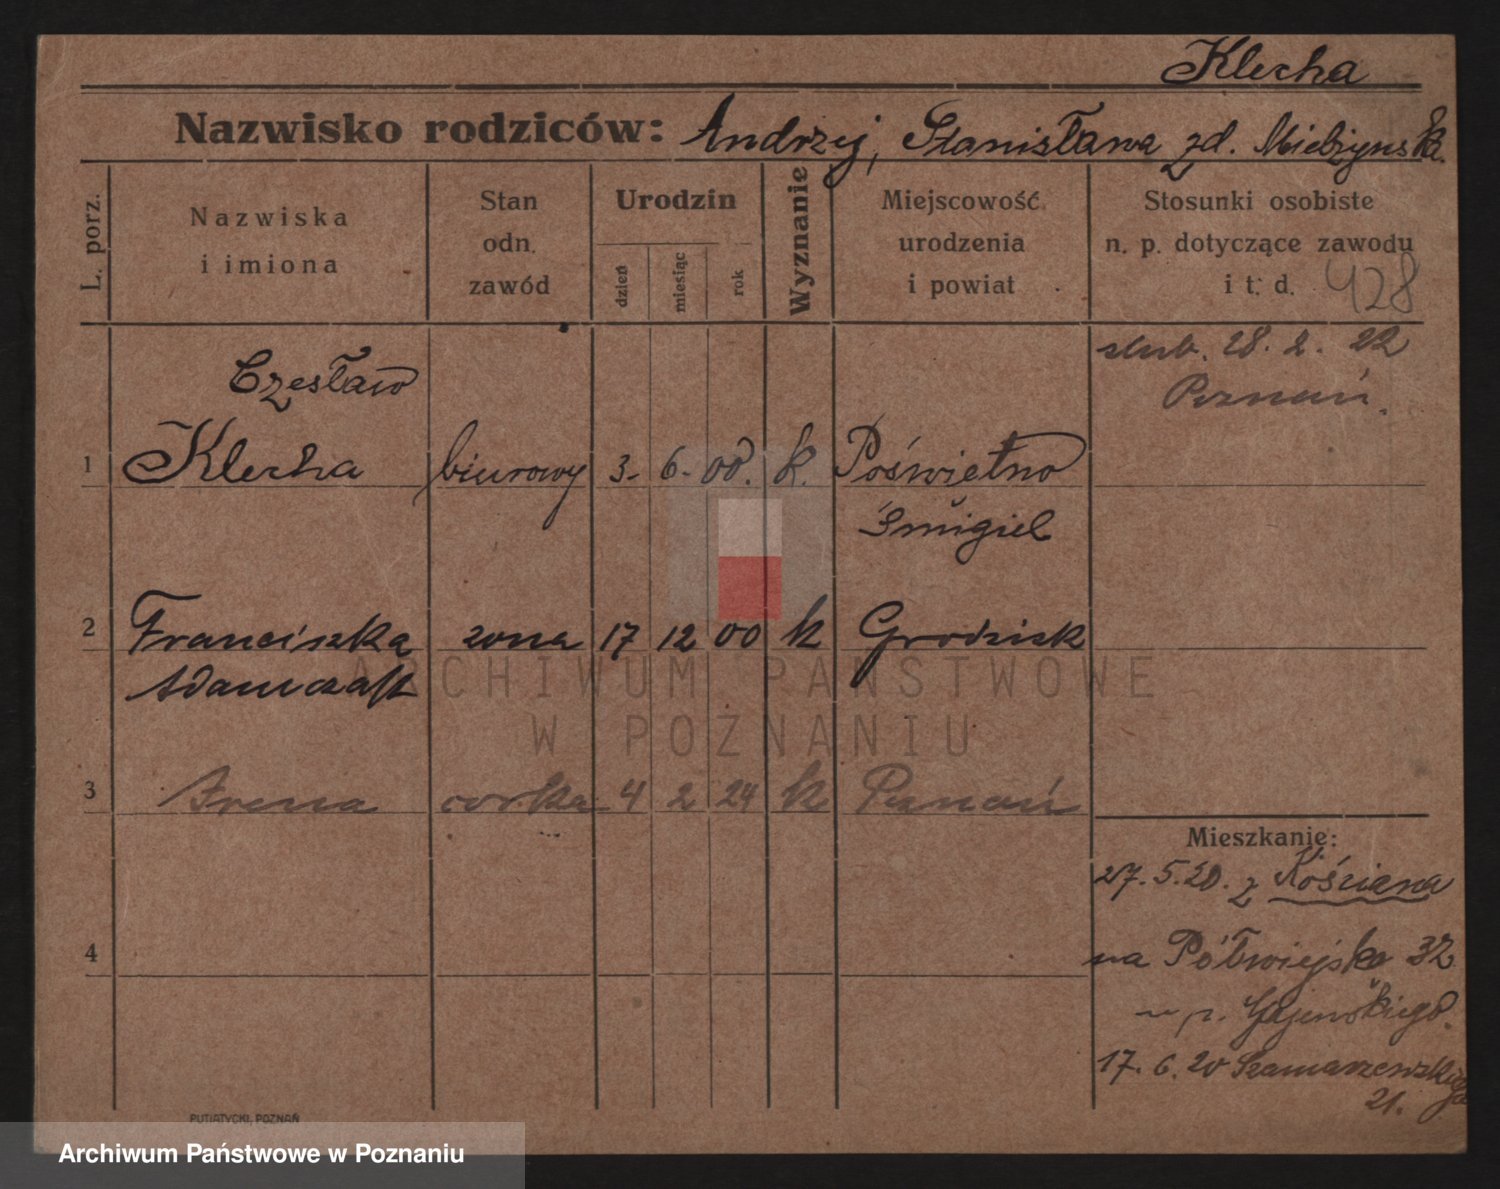 Klecha
Nazwisko rodziców: Andrzej, Stanisława zd. Mielżynska.
L. porz.
Nazwiska
i imiona
Stan
odn.
zawód
Urodzin
dzień
miesiąc
rok
Wyznanie
Miejscowość
urodzenia
i powiat
Stosunki osobiste
n. p. dotyczące zawodu
i t. d.
428
ślub. 28. 2. 22
Poznań.
Czesław
1 Klecha biurowy 3. 6. 00. k. Poświętno
Śmigiel
2 Franciszka żona 17 12 00 k Grodzisk
Adamczak
3 Irena córka 4 2 24 k Poznań
Mieszkanie:
27. 5. 20. z Kościana
4
na Półwiejska 32
u p. Gajewskiego.
17. 6. 20 Szamarzewskiego
21.
PUTIATYCKI, POZNAŃ
ARCHIWUM PAŃSTWOWE
W POZNANIU
Archiwum Państwowe w Poznaniu